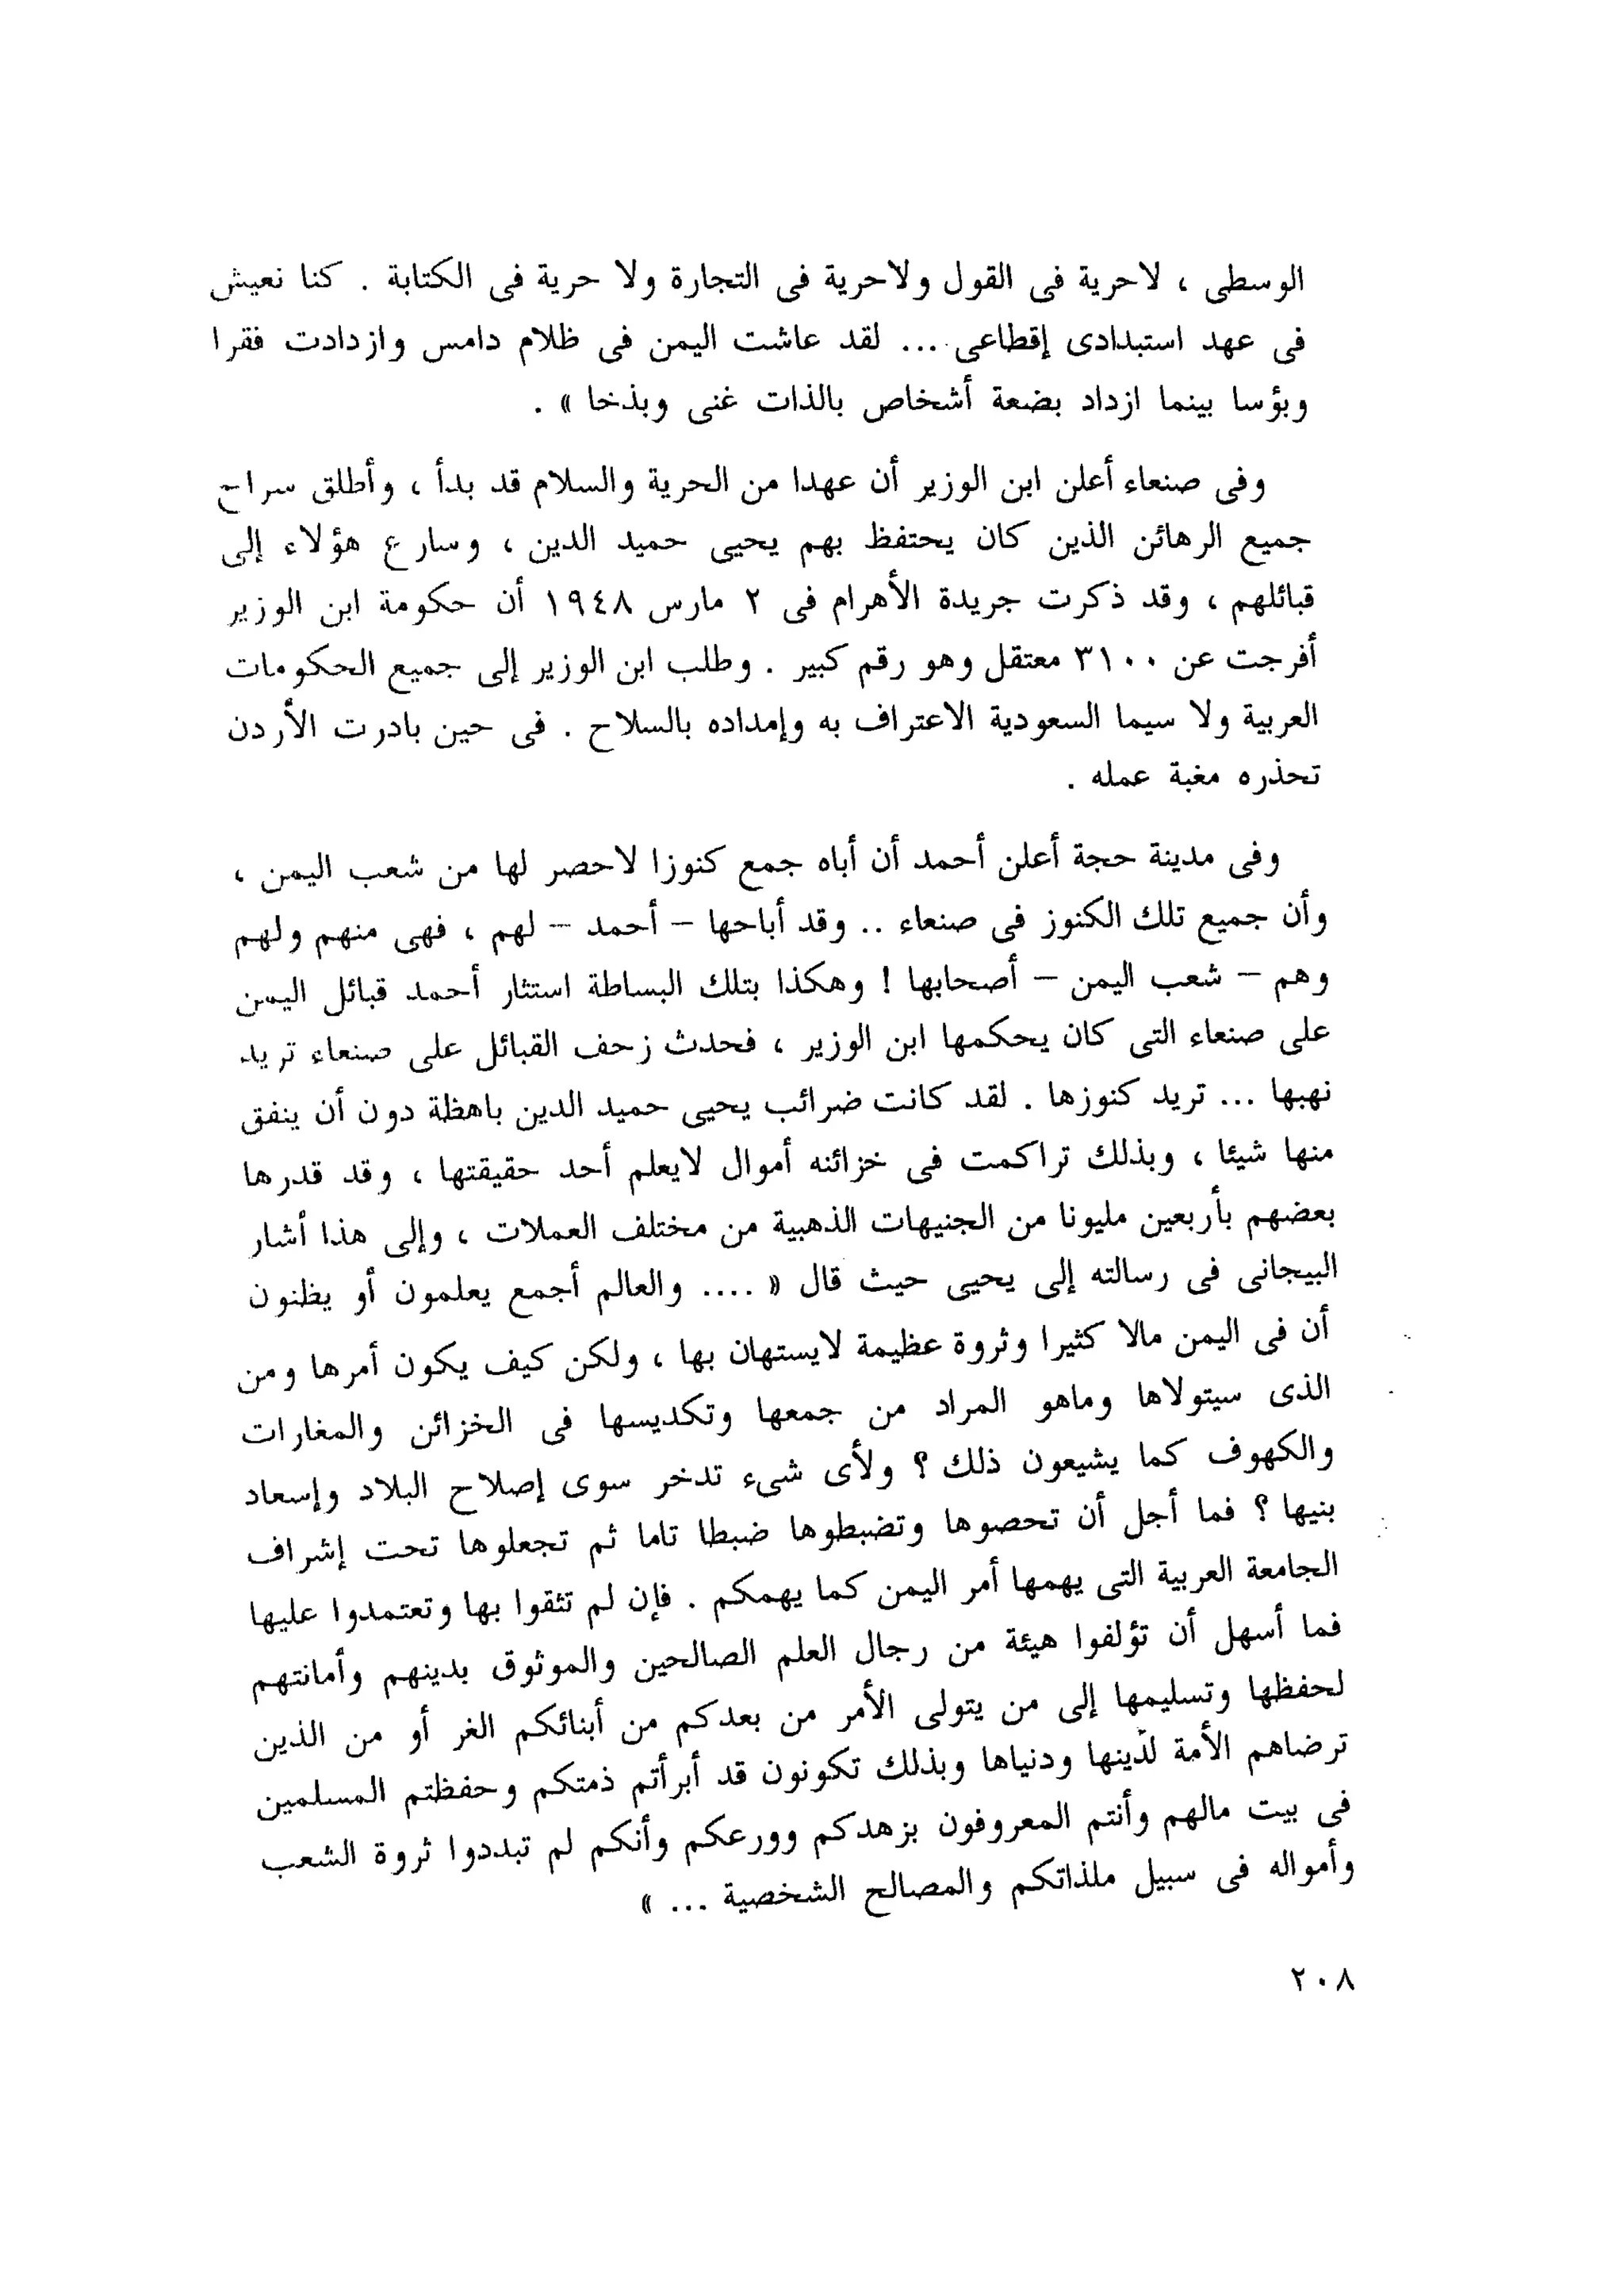 الوسطى ، لاحرية فى القول ولاحرية فى التجارة ولا حرية فى الكتابة . كنا نعيش
فى عهد استبدادى إقطاعى ... لقد عاشت اليمن فى ظلام دامس وازدادت فقرا
وبؤسا بينما ازداد بضعة أشخاص بالذات غنى وبذخا » .
وفى صنعاء أعلن ابن الوزير أن عهدا من الحرية والسلام قد بدأ ، وأطلق سراح
جميع الرهائن الذين كان يحتفظ بهم يحيى حميد الدين ، وسارع هؤلاء إلى
قبائلهم ، وقد ذكرت جريدة الأهرام فى ٢ مارس ١٩٤٨ أن حكومة ابن الوزير
أفرجت عن ٣١٠٠ معتقل وهو رقم كبير . وطلب ابن الوزير إلى جميع الحكومات
العربية ولا سيما السعودية الاعتراف به وإمداده بالسلاح . فى حين بادرت الأردن
تحذره مغبة عمله .
وفى مدينة حجة أعلن أحمد أن أباه جمع كنوزا لاحصر لها من شعب اليمن ،
وأن جميع تلك الكنوز فى صنعاء .. وقد أباحها – أحمد – لهم ، فهى منهم ولهم
وهم – شعب اليمن – أصحابها ! وهكذا بتلك البساطة استثار أحمد قبائل اليمن
على صنعاء التى كان يحكمها ابن الوزير ، فحدث زحف القبائل على صنعاء تريد
نهبها ... تريد كنوزها . لقد كانت ضرائب يحيى حميد الدين باهظة دون أن ينفق
منها شيئا ، وبذلك تراكمت فى خزائنه أموال لايعلم أحد حقيقتها ، وقد قدرها
بعضهم بأربعين مليونا من الجنيهات الذهبية من مختلف العملات ، وإلى هذا أشار
البيجانى فى رسالته إلى يحيى حيث قال « .... والعالم أجمع يعلمون أو يظنون
أن فى اليمن مالا كثيرا وثروة عظيمة لايستهان بها ، ولكن كيف يكون أمرها ومن
الذى سيتولاها وماهو المراد من جمعها وتكديسها فى الخزائن والمغارات
والكهوف كما يشيعون ذلك ؟ ولأى شىء تدخر سوى إصلاح البلاد وإسعاد
بنيها ؟ فما أجل أن تحصوها وتضبطوها ضبطا تاما ثم تجعلوها تحت إشراف
الجامعة العربية التى يهمها أمر اليمن كما يهمكم . فإن لم تثقوا بها وتعتمدوا عليها
فما أسهل أن تؤلفوا هيئة من رجال العلم الصالحين والموثوق بدينهم وأمانتهم
لحفظها وتسليمها إلى من يتولى الأمر من بعدكم من أبنائكم الغر أو من الذين
ترضاهم الأمة لدينها ودنياها وبذلك تكونون قد أبرأتم ذمتكم وحفظتم المسلمين
فى بيت مالهم وأنتم المعروفون بزهدكم وورعكم وأنكم لم تبددوا ثروة الشعب
وأمواله فى سبيل ملذاتكم والمصالح الشخصية ... »
٢٠٨